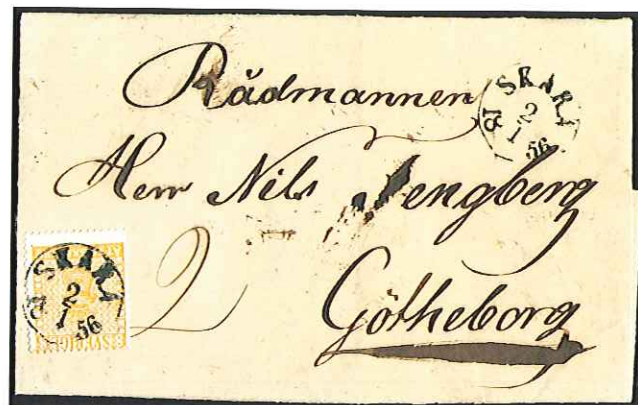 Rådmannen
SKARA
2
1
56
Herr Nils Tengberg
2
Götheborg
SKARA
2
1
56